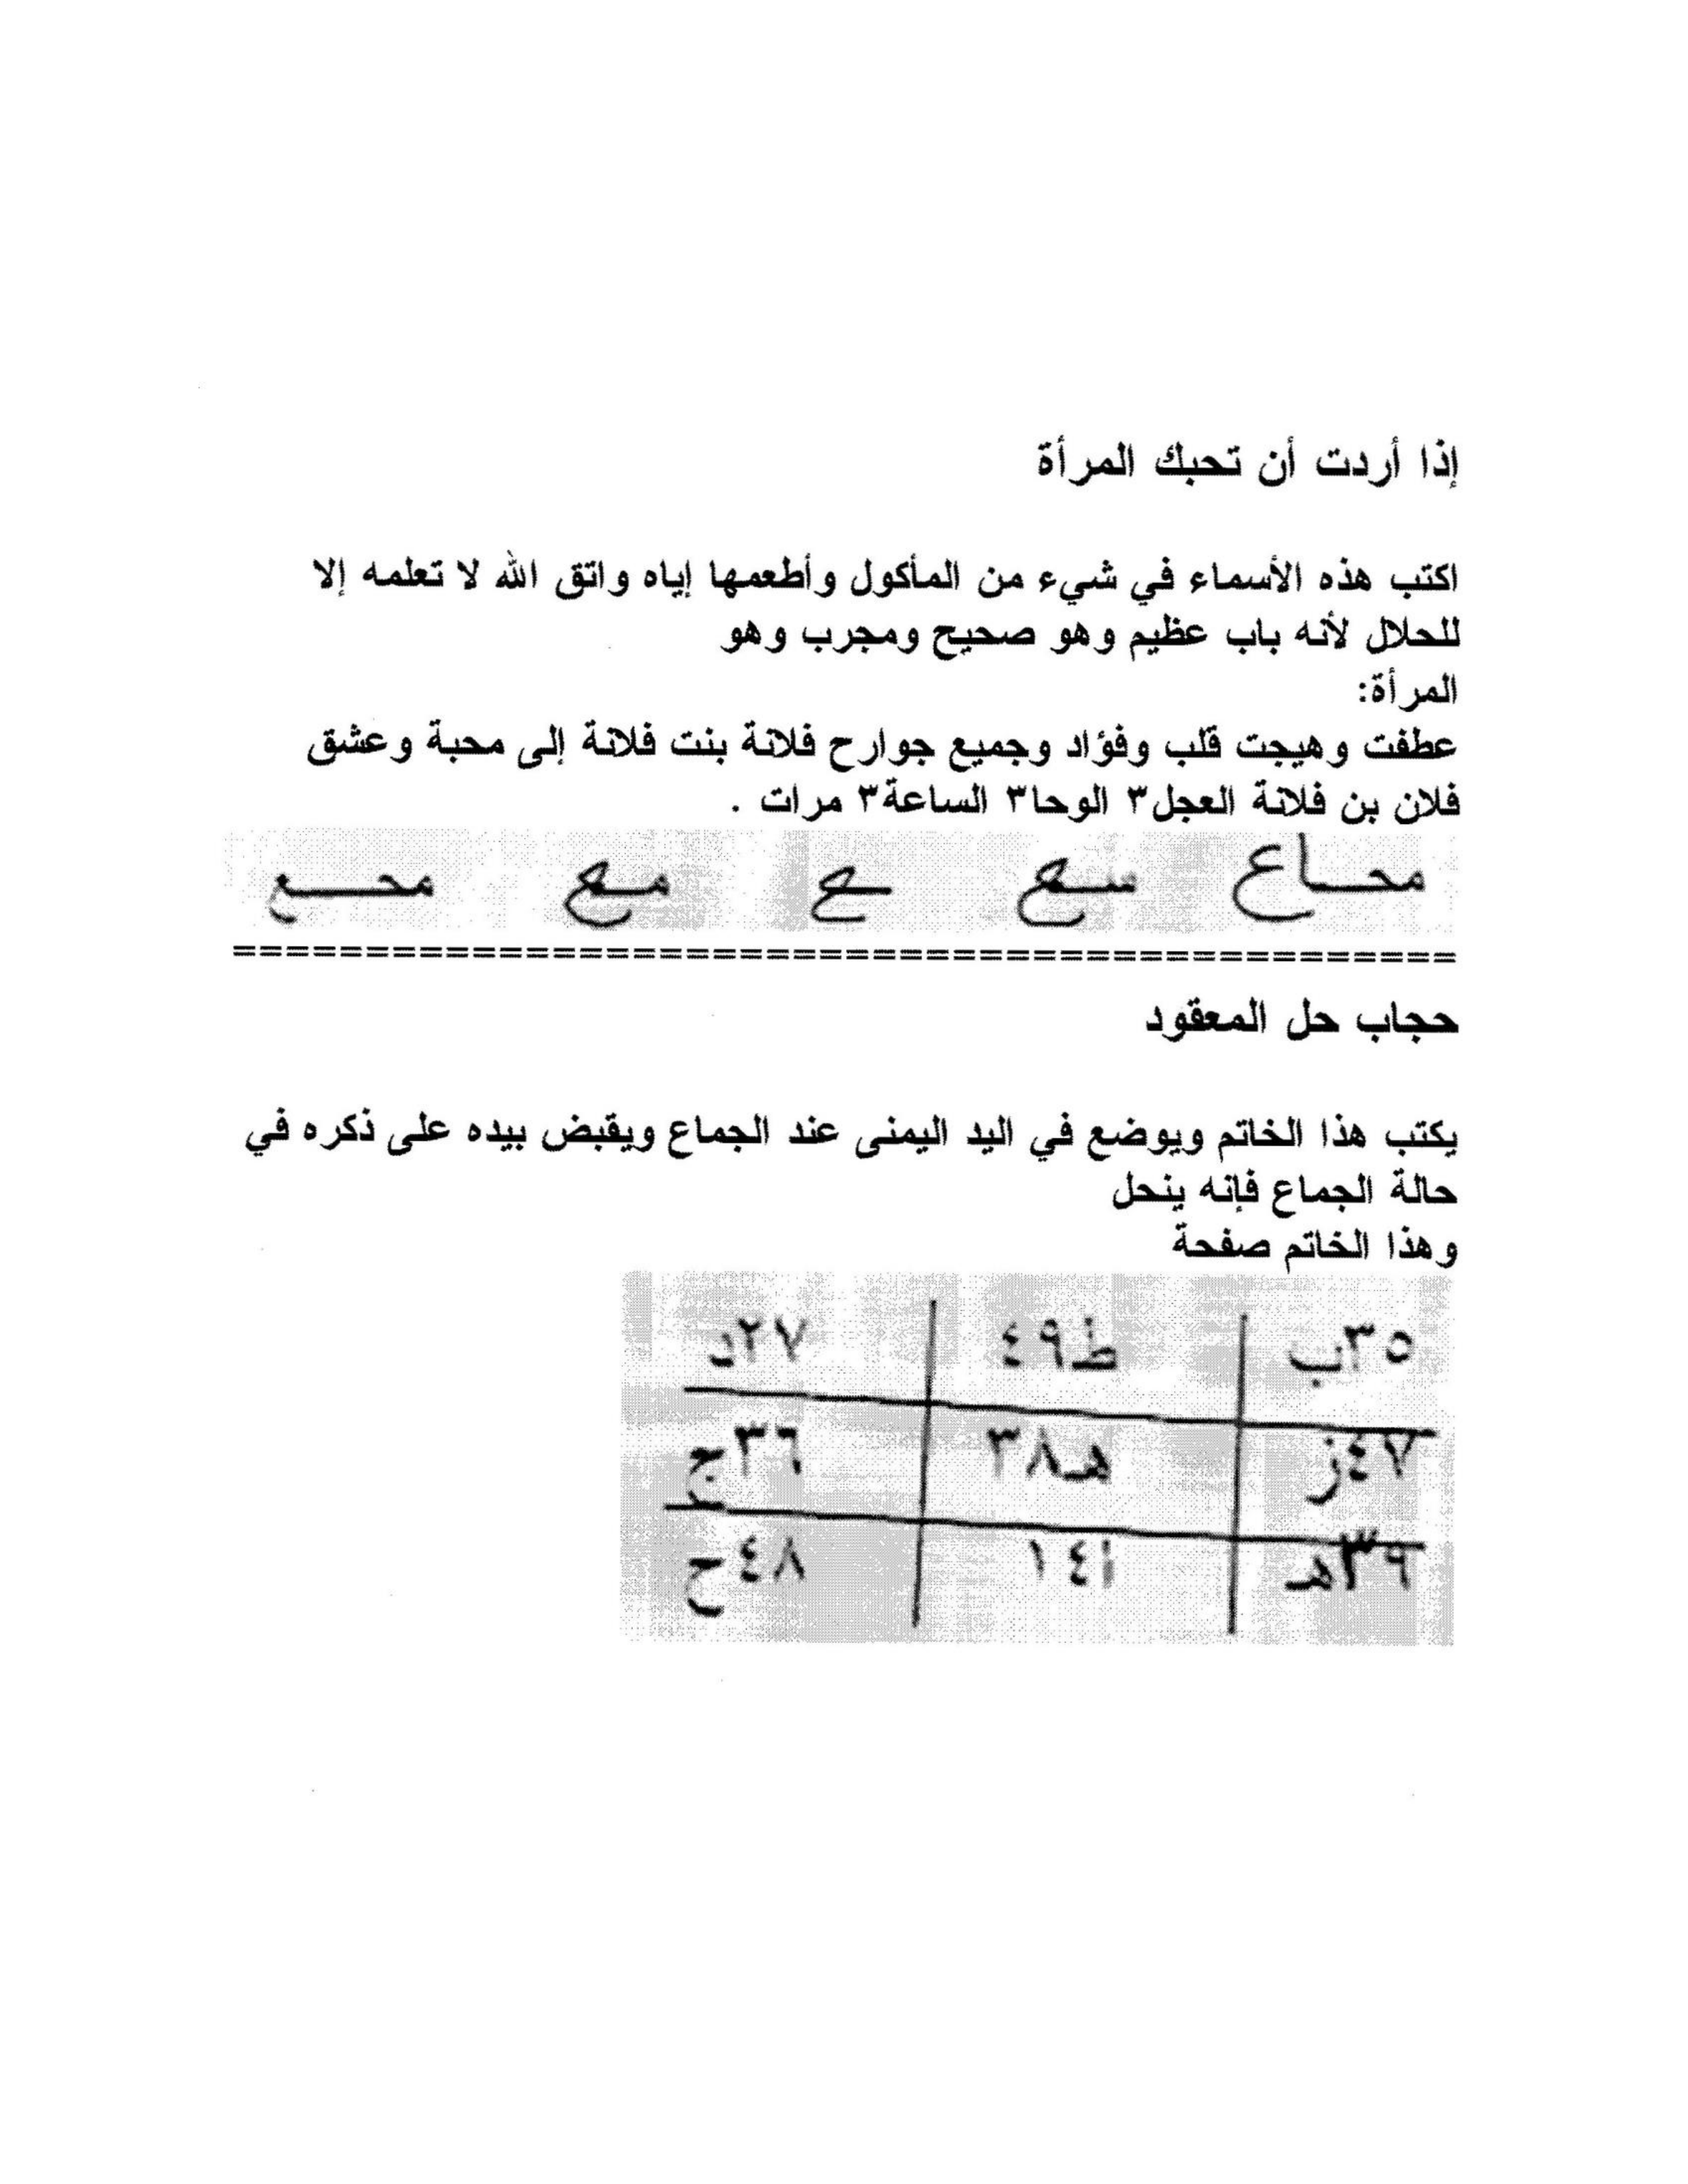 إذا أردت أن تحبك المرأة
اكتب هذه الأسماء في شيء من المأكول وأطعمها إياه واتق الله لا تعلمه إلا
للحلال لأنه باب عظيم وهو صحيح ومجرب وهو
المرأة:
عطفت وهيجت قلب وفؤاد وجميع جوارح فلانة بنت فلانة إلى محبة وعشق
فلان بن فلانة العجل٣ الوحا٣ الساعة٣ مرات .
محاع سع ع مع محع
==============================================
حجاب حل المعقود
يكتب هذا الخاتم ويوضع في اليد اليمنى عند الجماع ويقبض بيده على ذكره في
حالة الجماع فإنه ينحل
وهذا الخاتم صفحة
٣٥ب ط٤٩ ٢٧د
٤٧ز هـ٣٨ ٣٦ج
٣٩هـ أ٤١ ٤٨ح